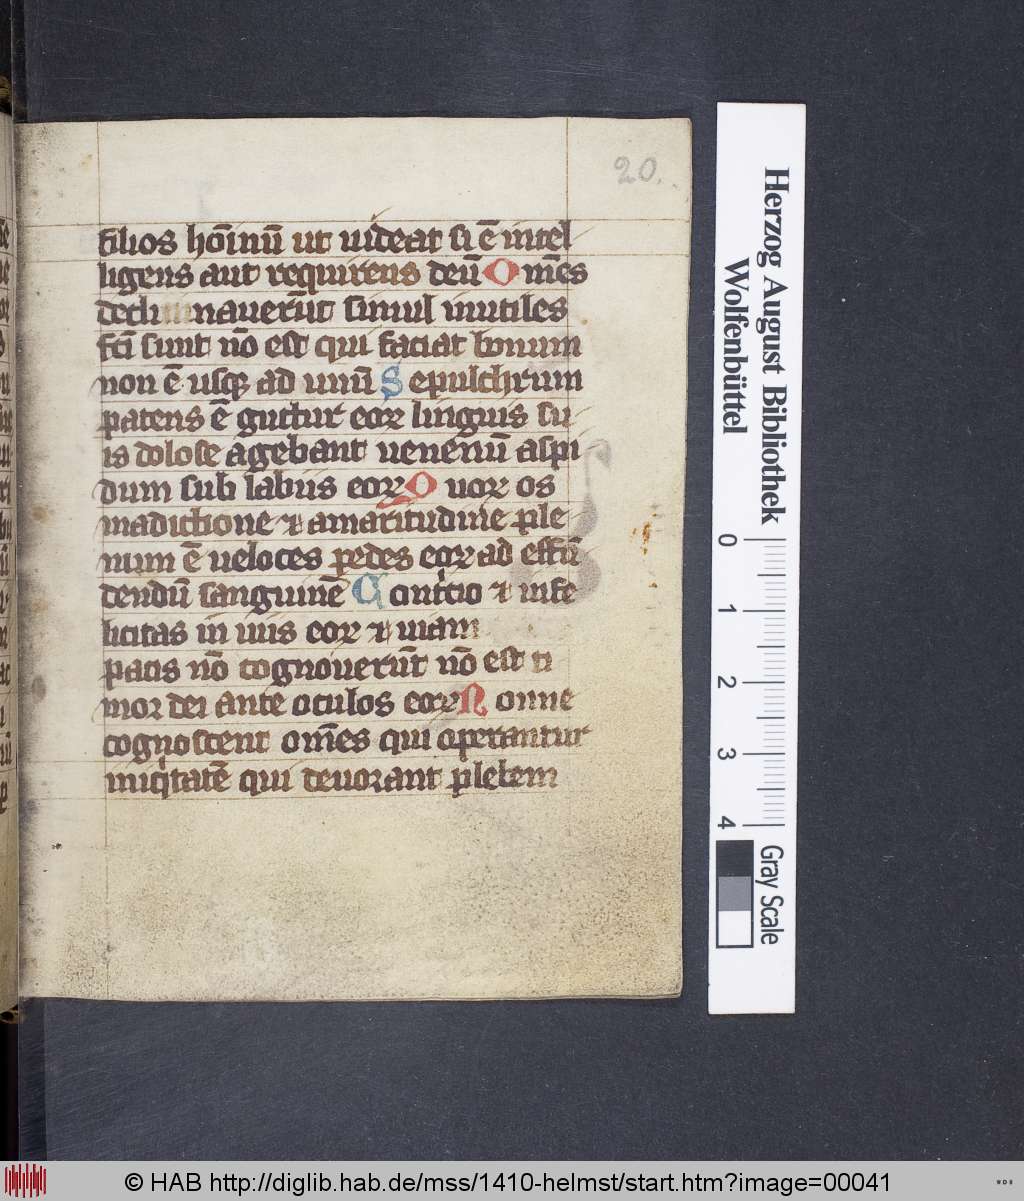 20.
filios ho̅inu̅ ut uideat si e̅ intel
ligens aut requirens deu̅ O m̅es
declinaueru̅t simul inutiles
fc̅i sunt no̅ est qui faciat bonum
non e̅ usqꝫ ad unu̅ S epulchrum
patens e̅ guttur eoꝝ linguis su
is dolose agebant uenenu̅ aspi
dum sub labiis eoꝝ Q uoꝝ os
maledictione ⁊ amaritudine ple
num e̅ ueloces pedes eoꝝ ad effu̅
dendu̅ sanguine̅ C ontricio ⁊ infe
licitas in uiis eoꝝ ⁊ uiam
pacis no̅ cognoueru̅t no̅ est ti
mor dei ante oculos eoꝝ N onne
cognoscent om̅es qui operantur
iniq̇tate̅ qui deuorant plebem
Herzog August Bibliothek
Wolfenbüttel
0 1 2 3 4
Gray Scale
© HAB http://diglib.hab.de/mss/1410-helmst/start.htm?image=00041